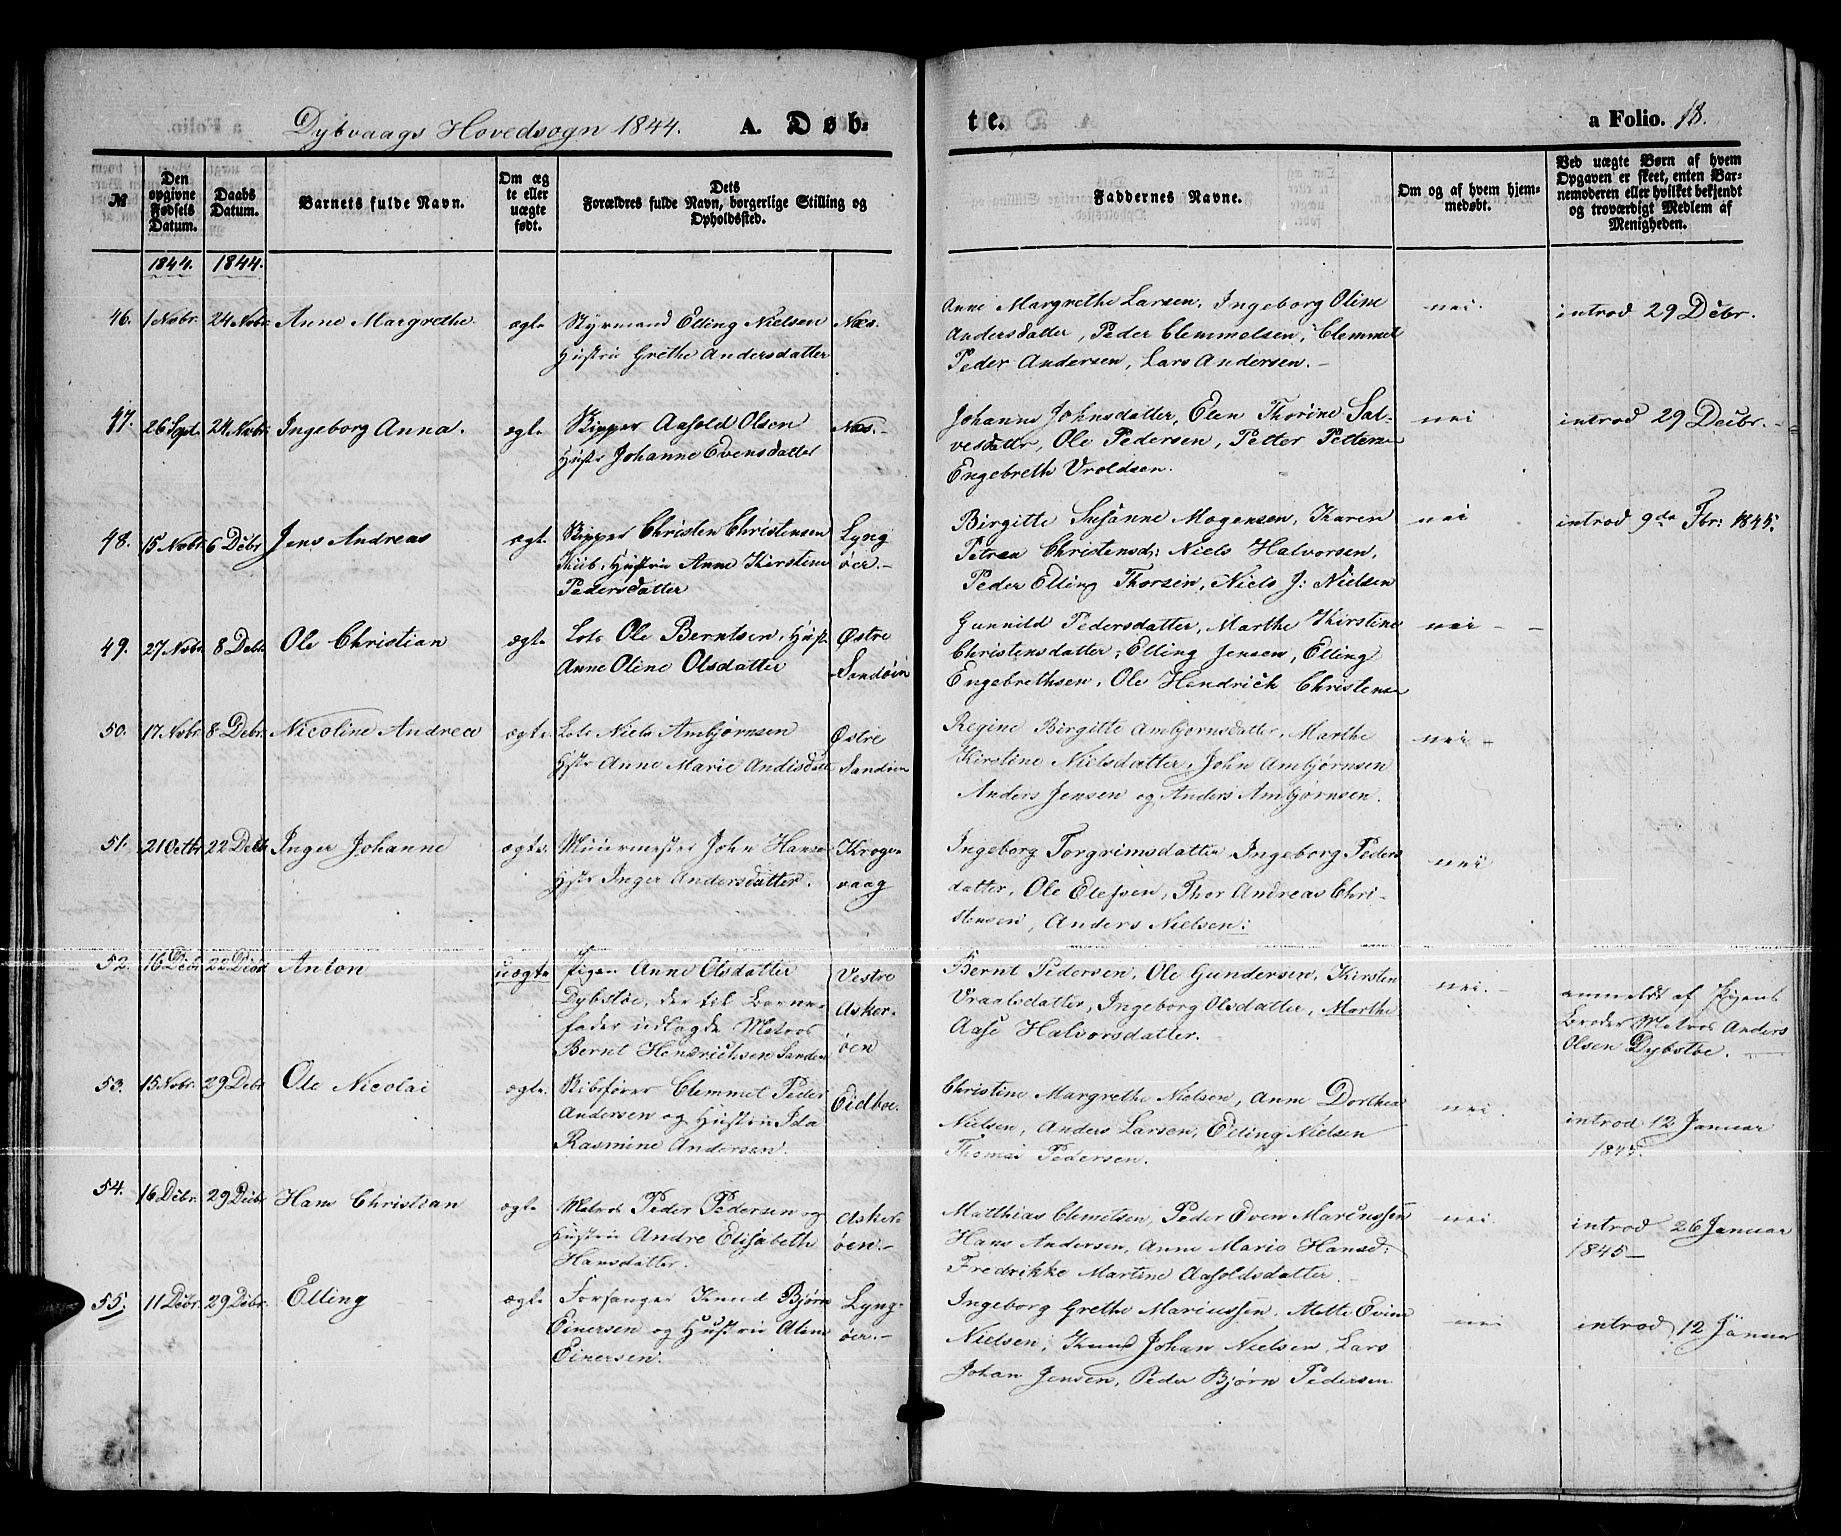 Dybvaags Hovedsogn 1844. A. Døb-
te. a Folio. 18.
№
Den opgivne Fødsels Datum.
Daabs Datum.
Barnets fulde Navn.
Om ægte eller uægte født.
Dets Forældres fulde Navn, borgerlige Stilling og Opholdssted.
Faddernes Navne.
Om og af hvem hjemmedøbt.
Ved uægte Børn af hvem Opgaven er skeet, enten Barnemoderen eller hvilket bekjendt og troværdigt Medlem af Menigheden.
1844. 1844.
46. 1 Nobr. 24 Nobr. Anne Margrethe ægte Styrmand Elling Nielsen Næs.
Hustru Grethe Andersdatter
Anne Margrethe Larsen, Ingeborg Oline
Andersdatter, Peder Clemmelsen, Clemmet
Peder Andersen, Lars Andersen.
nei. introd 29 Debr.
47. 26 Sept. 24 Nobr. Ingeborg Anna. ægte Skipper Aasold Olsen Næs.
Hustr Johanne Evensdatter
Johanne Johnsdatter, Elen Thorine Sal-
vesdattr, Ole Pedersen, Petter Pettersen
Engebreth Vroldsen.
nei introd 29 Decbr.
48. 15 Nobr. 6 Debr Jens Andreas ægte Skipper Christen Christensen Lyng
Kiib, Hustru Anne Kirstine øer.
Pedersdatter
Birgitte Susanne Mogensen, Karen
Petrea Christensd: Niels Halvorsen,
Peder Elling Thorsen, Niels J: Nielsen
nei introd 9de Fbr: 1845.
49. 27 Nobr 8 Debr. Ole Christian ægte Lots Ole Berntsen, Hust Østre
Anne Oline Olsdatter Sandøen
Gunnild Pedersdatter, Marthe Kirstine
Christensdatter, Elling Jensen, Elling
Engebrethsen, Ole Hendrich Christensen
nei
50. 17 Nobr 8 Debr. Nicoline Andrea ægte Lots Niels Ambjørnsen Østre
Hstr Anne Marie Andisdatt Sandøen
Regine Birgitte Ambjørnsdatter, Marthe
Kirstine Nielsdatter, John Ambjørnsen
Anders Jensen og Anders Ambjørnsen.
nei
51. 21 Octbr 22 Debr Inger Johanne ægte Muurmester John Hansen Krogen
Hstr Inger Andersdatter. vaag
Ingeborg Torgrimsdatter Ingeborg Peders
datter, Ole Elefsen, Thor Andreas Chri-
stensen, Anders Nielsen.
nei
52. 16 Debr 22 Debr Anton uægte Pigen Anne Olsdatter Vestre
Dybstøe, der til Barne- Asker-
fader udlagde Matros øen
Bernt Hendrichsen Sandøen
Bernt Pedersen, Ole Gundersen, Kirsten
Vraalsdatter, Ingeborg Olsdatter, Marthe
Aase Halvorsdatter.
nei.
anmeldt af Pigens
Broder Matros Anders
Olsen Dybstøe.
53. 15 Nobr. 29 Debr Ole Nicolai ægte Skibsfører Clemmet Peder Eidboe.
Andersen og Hustru Ida
Rasmine Andersen.
Christine Margrethe Nielsen, Anne Dorthea
Nielsen, Anders Larsen, Elling Nielsen
Thomas Pedersen.
nei.
introd 12 Januar
1845.
54. 16 Debr. 29 Debr Hans Christian ægte Matros Peder Pedersen og Asker-
Hustru Andre Elisabeth øen.
Hansdatter.
Matthias Clemetsen, Peder Even Marcussen
Hans Andersen, Anne Marie Hansd:
Fredrikke Martine Aasoldsdatter.
nei.
introd 26 Januar
1845
55. 11 Debr. 29 Debr. Elling ægte Forsanger Knud Bjørn Lyng-
Einersen og Hustru Aline øer.
Einersen.
Ingeborg Grethe Mariussen, Mette Evine
Nielsen, Knud Johan Nielsen, Lars
Johan Jensen, Peder Bjørn Pedersen
nei introd 12 Januar